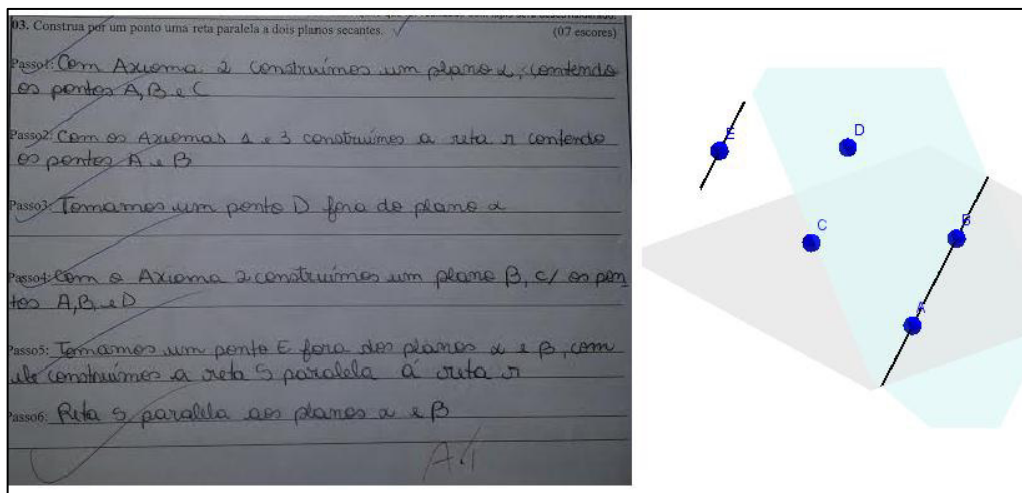 03. Construa por um ponto uma reta paralela a dois planos secantes.
(07 escores)
Passo1: Com Axioma 2 construímos um plano α, contendo
os pontos A, B e C
Passo2: Com os Axiomas 1 e 3 construímos a reta r contendo
os pontos A e B
Passo3: Tomamos um ponto D fora do plano α
Passo4: Com o Axioma 2 construímos um plano β, c/ os pon
tos A, B, e D
Passo5: Tomamos um ponto E fora dos planos α e β, com
ele construímos a reta S paralela á reta r
Passo6: Reta S paralela aos planos α e β
E
D
C
B
A